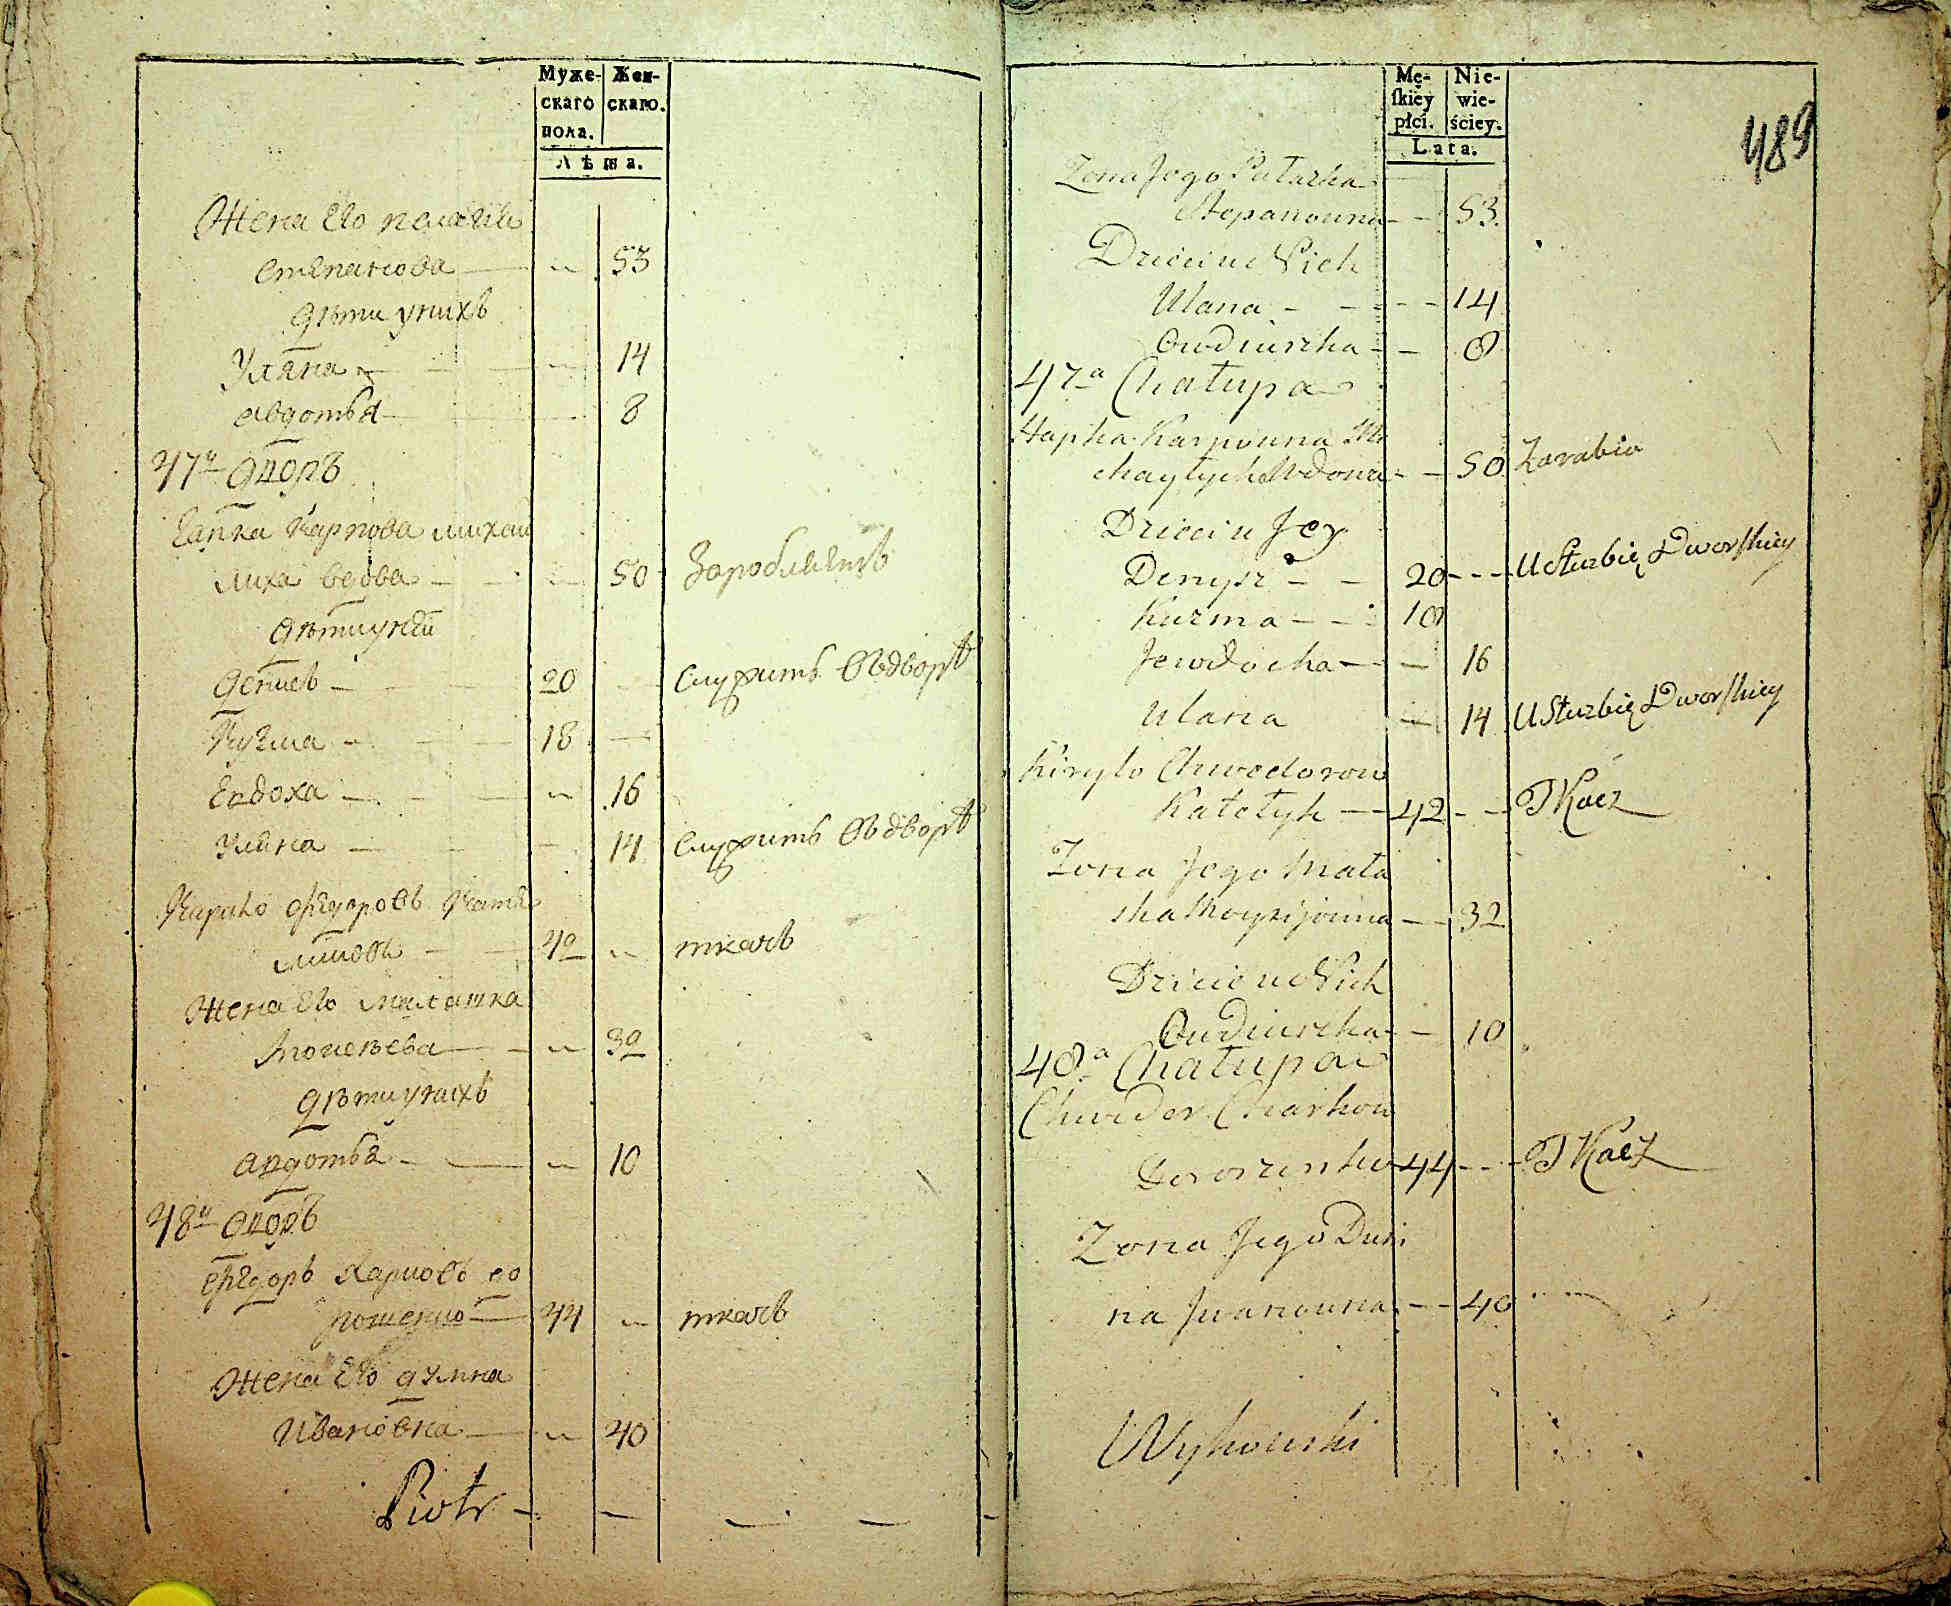 Муже-
скаго
пола.
Жен-
скаго.
Лѣта.
Жена Его пелагия
степанова — „ 53
дѣти унихъ
Уляна — 14
Авдотья — 8
47й Дворъ
Гапка Карпова михай
лиха вдова — 50 Зароблаетъ
дѣти унеи
Денисъ — 20 Служитъ въдворѣ
Кузма — 18
Евдоха — „ 16
Уляна — 14 Служитъ въдворѣ
Кирило Федоровъ Кате
42 „ ткачъ
Жена Его малашка
„ 32
дѣти унихъ
Авдотья — „ 10
48й Дворъ
Федоръ Харковъ до
рошенко — 44 „ ткачъ
Жена Его думна
Ивановна — „ 40
Piotr — — — —
Mę-
skiéy
płci.
Nie-
wie-
ściey.
Lata.
489
Zona Jego Palazka
Stepanouna — 53
Dzieci u Nich
Ulana — 14
Owdiuszka — 8
47a Chałupa
Hapka Karpouna Mi
chayłycha Wdowa — 50 Zarabia
Dzieci u Jey
Denysz — 20 — U Słuzbię Dworskiey
Kuzma — 18
Jewdocha — 16
Ulana — 14 U Słuzbię Dworskiey
Kiryło Chwedorow
Katełyk — 42 — Tkacz
Zona Jego Mała
szka — 32
Dzieci u Nich
Owdiuszka — 10
48a Chałupa
Chwedor Charkow
Doroszenko 44 — Tkacz
Zona Jego Dum
na Iwanouna — 40
Wykowski